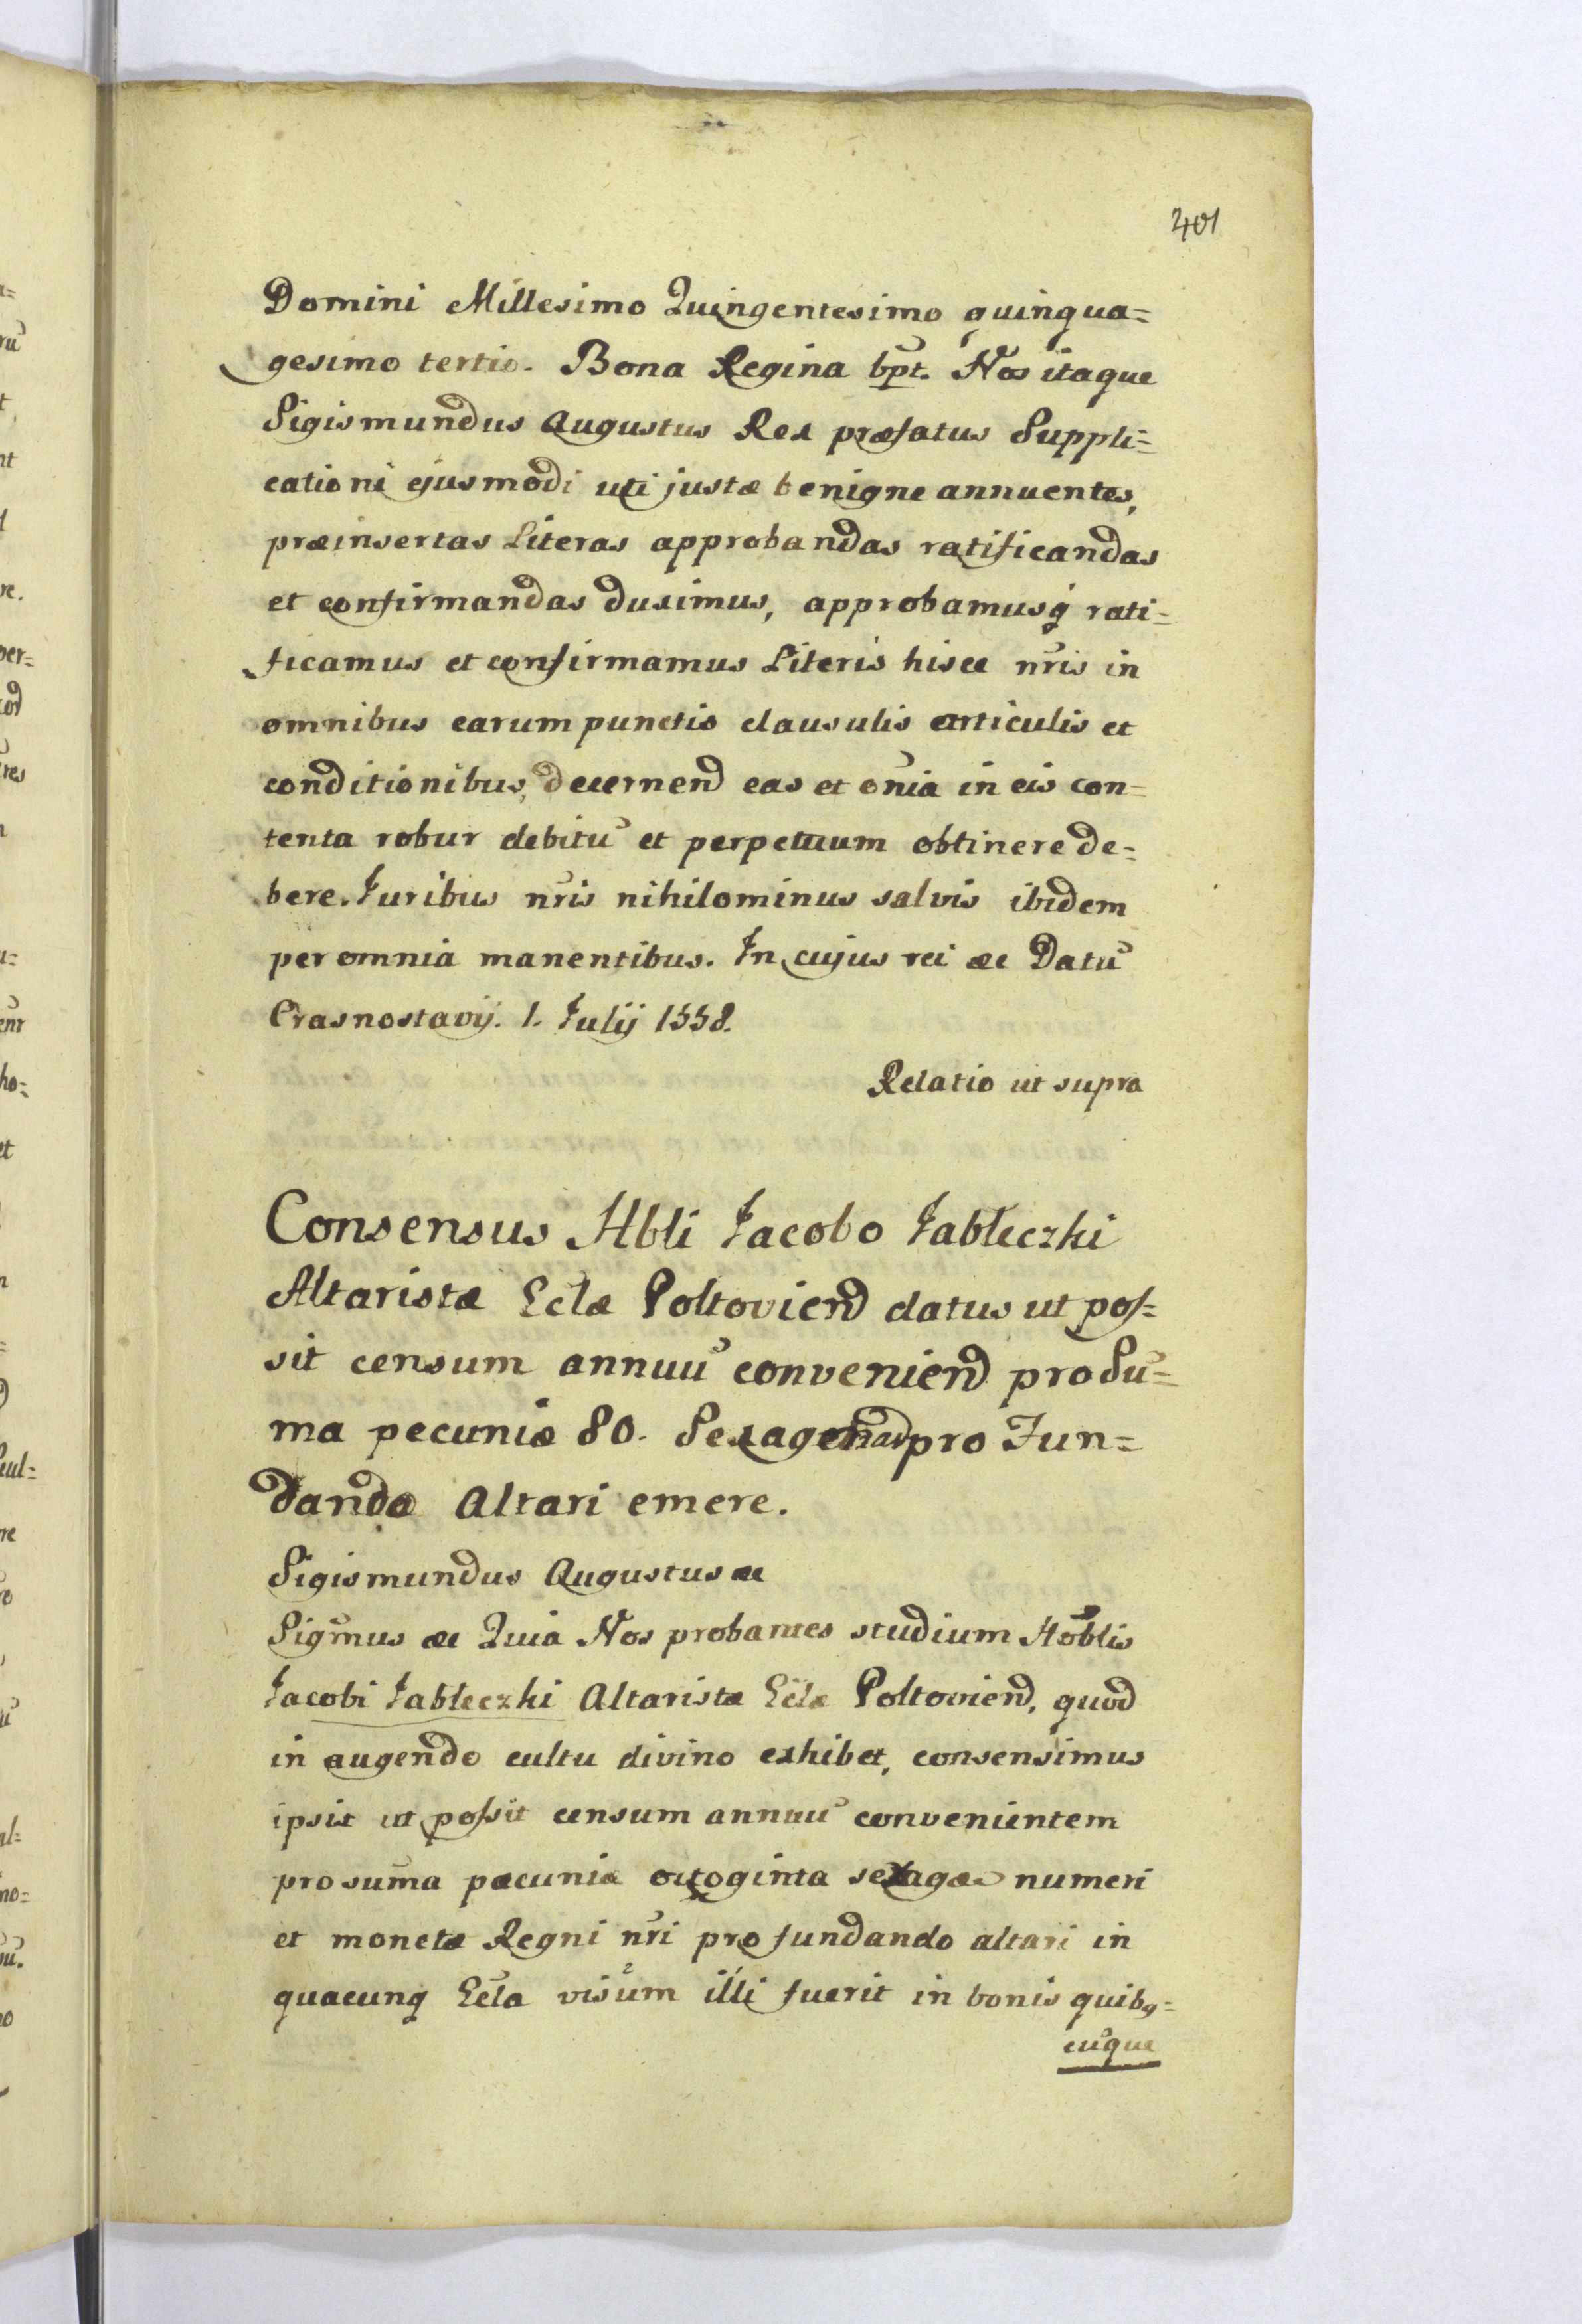 401
Domini Millesimo Quingentesimo quinqua=
gesimo tertio. Bona Regina sspt. Nos itaque
Sigismundus Augustus Rex præfatus Suppli=
cationi ejusmodi uti justæ benigne annuentes,
præinsertas Literas approbandas ratificandas
et confirmandas duximus, approbamusq́ rati=
ficamus et confirmamus Literis hisce nr̃is in
omnibus earum punctis clausulis articulis et
conditionibus, decernend eas et om̃ia in eis con=
tenta robur debitũ et perpetuum obtinere de=
bere. Juribus nr̃is nihilominus salvis ibidem
per omnia manentibus. In cujus rei &c Datũ
Crasnostavij. 1. Julij 1558.
Relatio ut supra
Consensus Nbli Jacobo Jabłeczki
Altaristæ Eclæ Poltoviend datus ut pos=
sit censum annuũ conveniend pro Su=
ma pecuniæ 80. Sexagenar pro Fun=
dando Altari emere.
Sigismundus Augustus &c
Sigm̃us &c Quia Nos probantes studium Nõblis
Jacobi Jabłeczki Altaristæ Ecĩæ Poltoviend, quod
in augendo cultu divino exhibet, consensimus
ipsit ut possit censum annuũ convenientem
pro sum̃a pæcuniæ octoginta sexagas numeri
et monetæ Regni nr̃i pro fundando altari in
quacunq Ecĩa visum illi fuerit in bonis quibq=
cũque